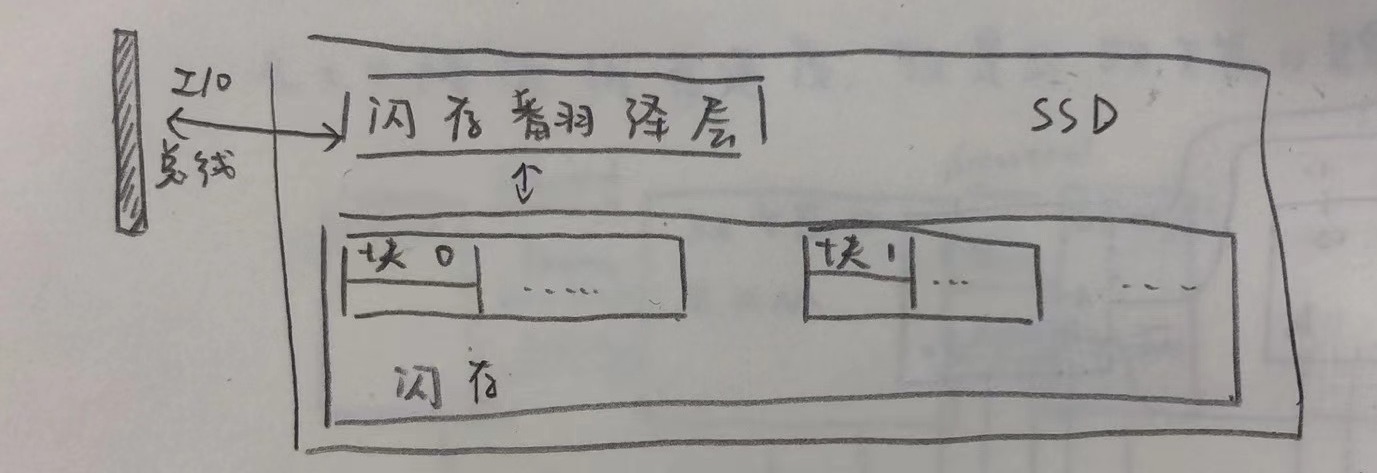 I/O
总线
闪存翻译层
SSD
块 0
.....
块 1
...
....
闪存